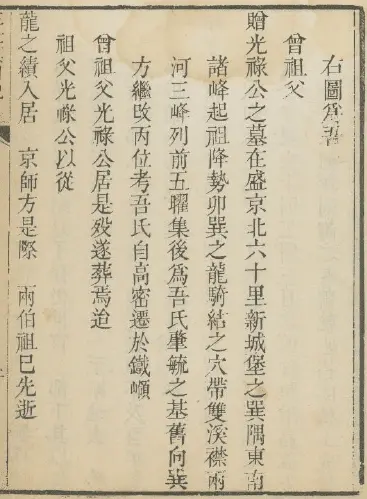 右圖爲吾
曾祖父
贈光祿公之墓在盛京北六十里新城堡之巽隅東南
諸峰起祖降勢卯巽之龍騎結之穴帶雙溪襟兩
河三峰列前五曜集後爲吾氏肇毓之基舊向巽
方繼改丙位考吾氏自高密遷於鐵嶺
曾祖父光祿公居是歿遂葬焉迨
祖父光祿公以從
龍之績入居 京師方是際 兩伯祖巳先逝